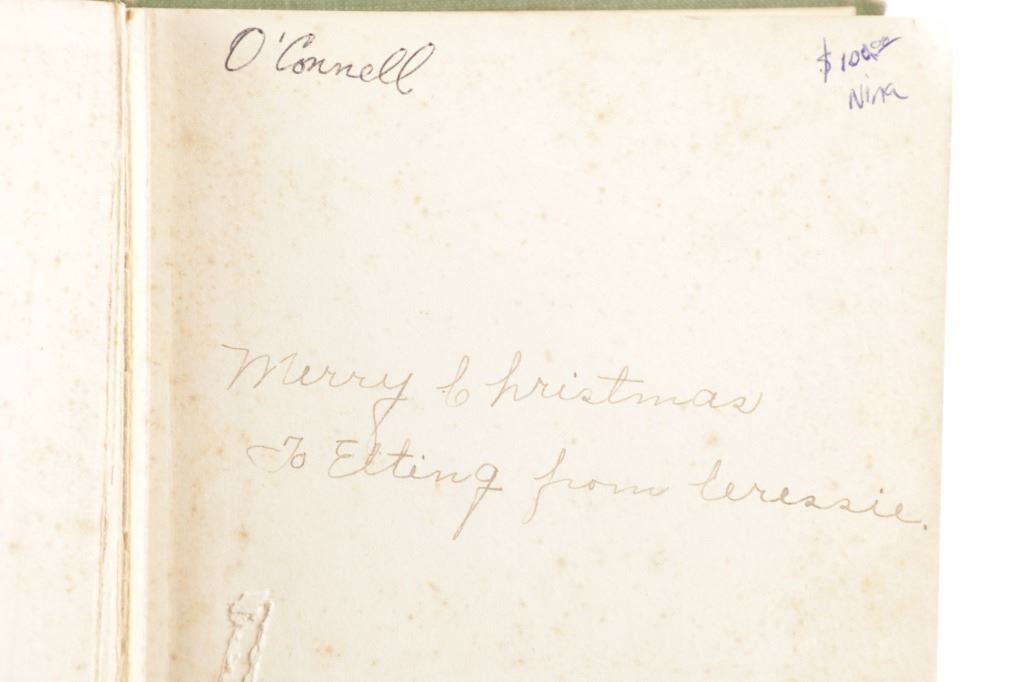 O'Connell
$100.00
Nina
Merry Christmas
To Elting from Cressie.